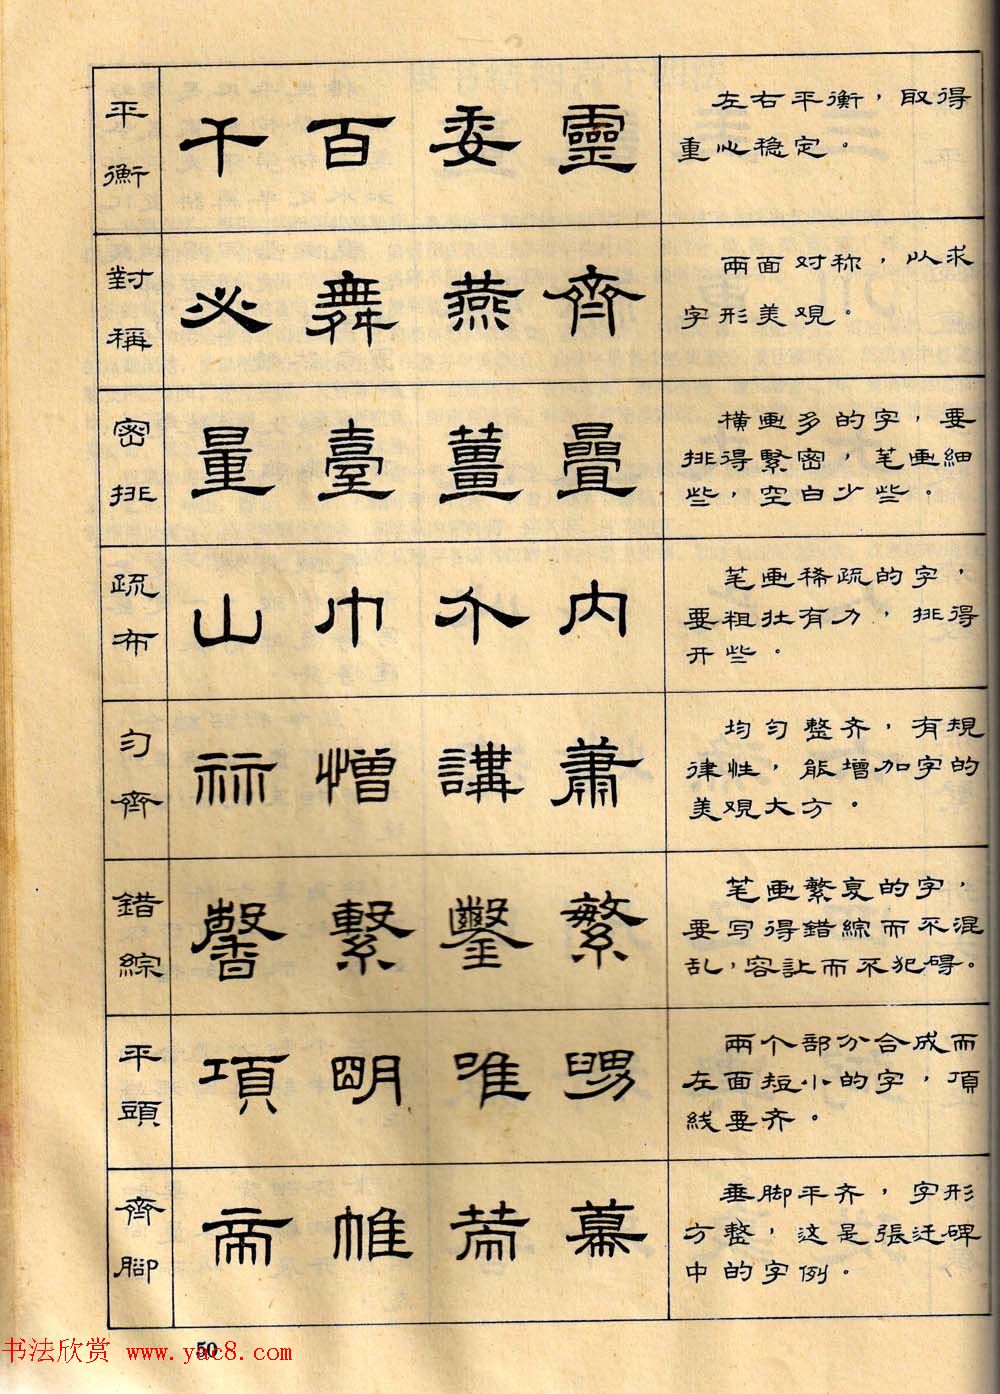 平衡
千 百 委 靈
左右平衡，取得
重心稳定。
對稱
必 舞 燕 齊
兩面对称，以求
字形美观。
密排
量 臺 薑 疊
横画多的字，要
排得緊密，笔画细
些，空白少些。
疏布
山 巾 介 内
笔画稀疏的字，
要粗壮有力，排得
开些。
匀齊
憎 講 肅
均匀整齐，有規
律性，能增加字的
美观大方。
錯綜
馨 繫 鑿 繁
笔画繁复的字，
要写得錯綜而不混
乱，容让而不犯碍。
平頭
項 明 唯
兩个部分合成而
左面短小的字，頂
线要齐。
齊腳
帝 帷
垂脚平齐，字形
方整，这是張迁碑
中的字例。
50
书法欣赏 www.yac8.com